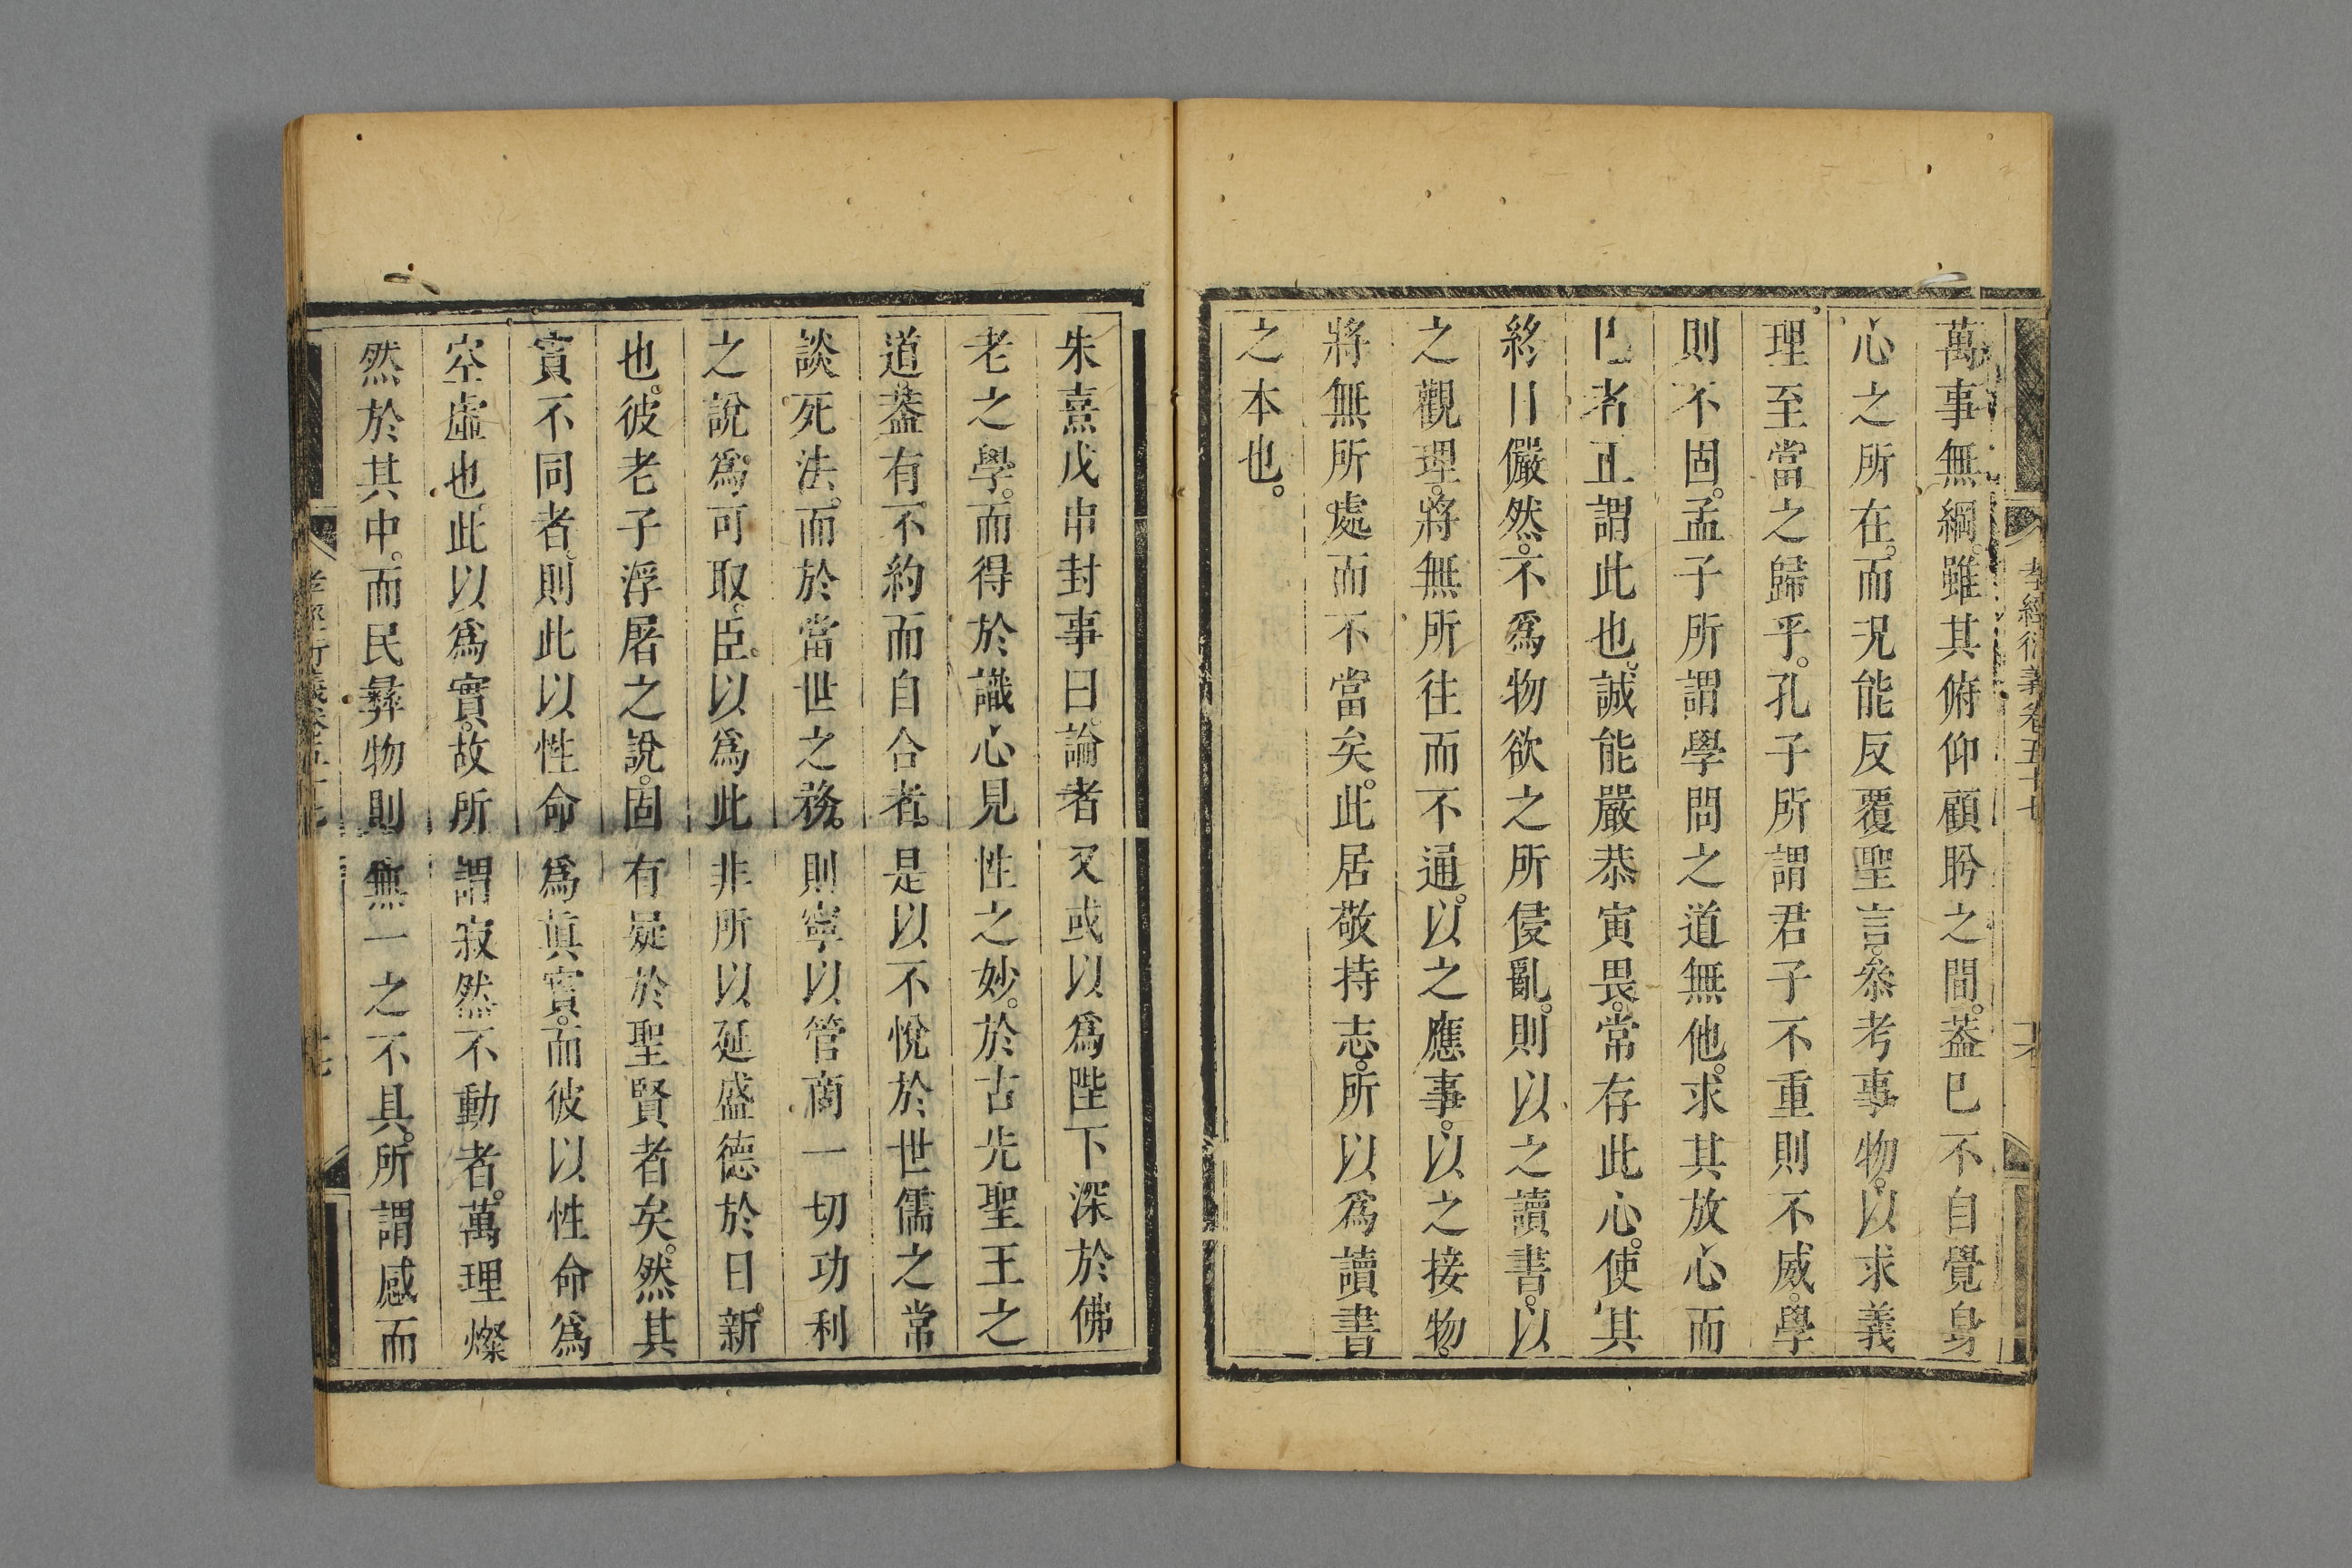 孝經衍義卷五十七
萬事無綱。雖其俯仰顧盻之間。葢巳不自覺身
心之所在。而況能反覆聖言。叅考事物。以求義
理至當之歸乎。孔子所謂君子不重則不威。學
則不固。孟子所謂學問之道無他。求其放心而
巳者正謂此也。誠能嚴恭寅畏。常存此心。使其
終日儼然。不爲物欲之所侵亂。則以之讀書。以
之觀理。將無所往而不通。以之應事。以之接物。
將無所處而不當矣。此居敬持志。所以爲讀書
之本也。
朱熹戊申封事曰。論者又或以爲陛下深於佛
老之學。而得於識心見性之妙。於古先聖王之
道葢有不約而自合者。是以不悅於世儒之常
談死法。而於當世之務。則寧以管商一切功利
之說爲可取。臣以爲此非所以延盛德於日新
也。彼老子浮屠之說。固有疑於聖賢者矣。然其
實不同者。則此以性命爲眞實。而彼以性命爲
空虛也。此以爲實。故所謂寂然不動者。萬理燦
然於其中。而民彝物則無一之不具。所謂感而
孝經衍義卷五十七